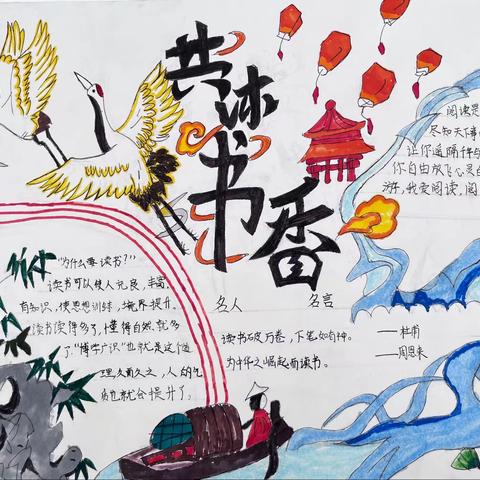 共沐书香
阅读是
尽知天下事
让你遥隔千年
你自由放飞心灵
游,我爱阅读,阅
"为什么要读书?"
读书可以使人允良,丰富
有知识,使思想训练,境界提升。
读书读得多了,懂得自然就多
了"博学广识"也就是这个道
理,久而久之,人的气
质也就会提升了。
名人 名言
读书破万卷,下笔如有神。 ——杜甫
为中华之崛起而读书。 ——周恩来